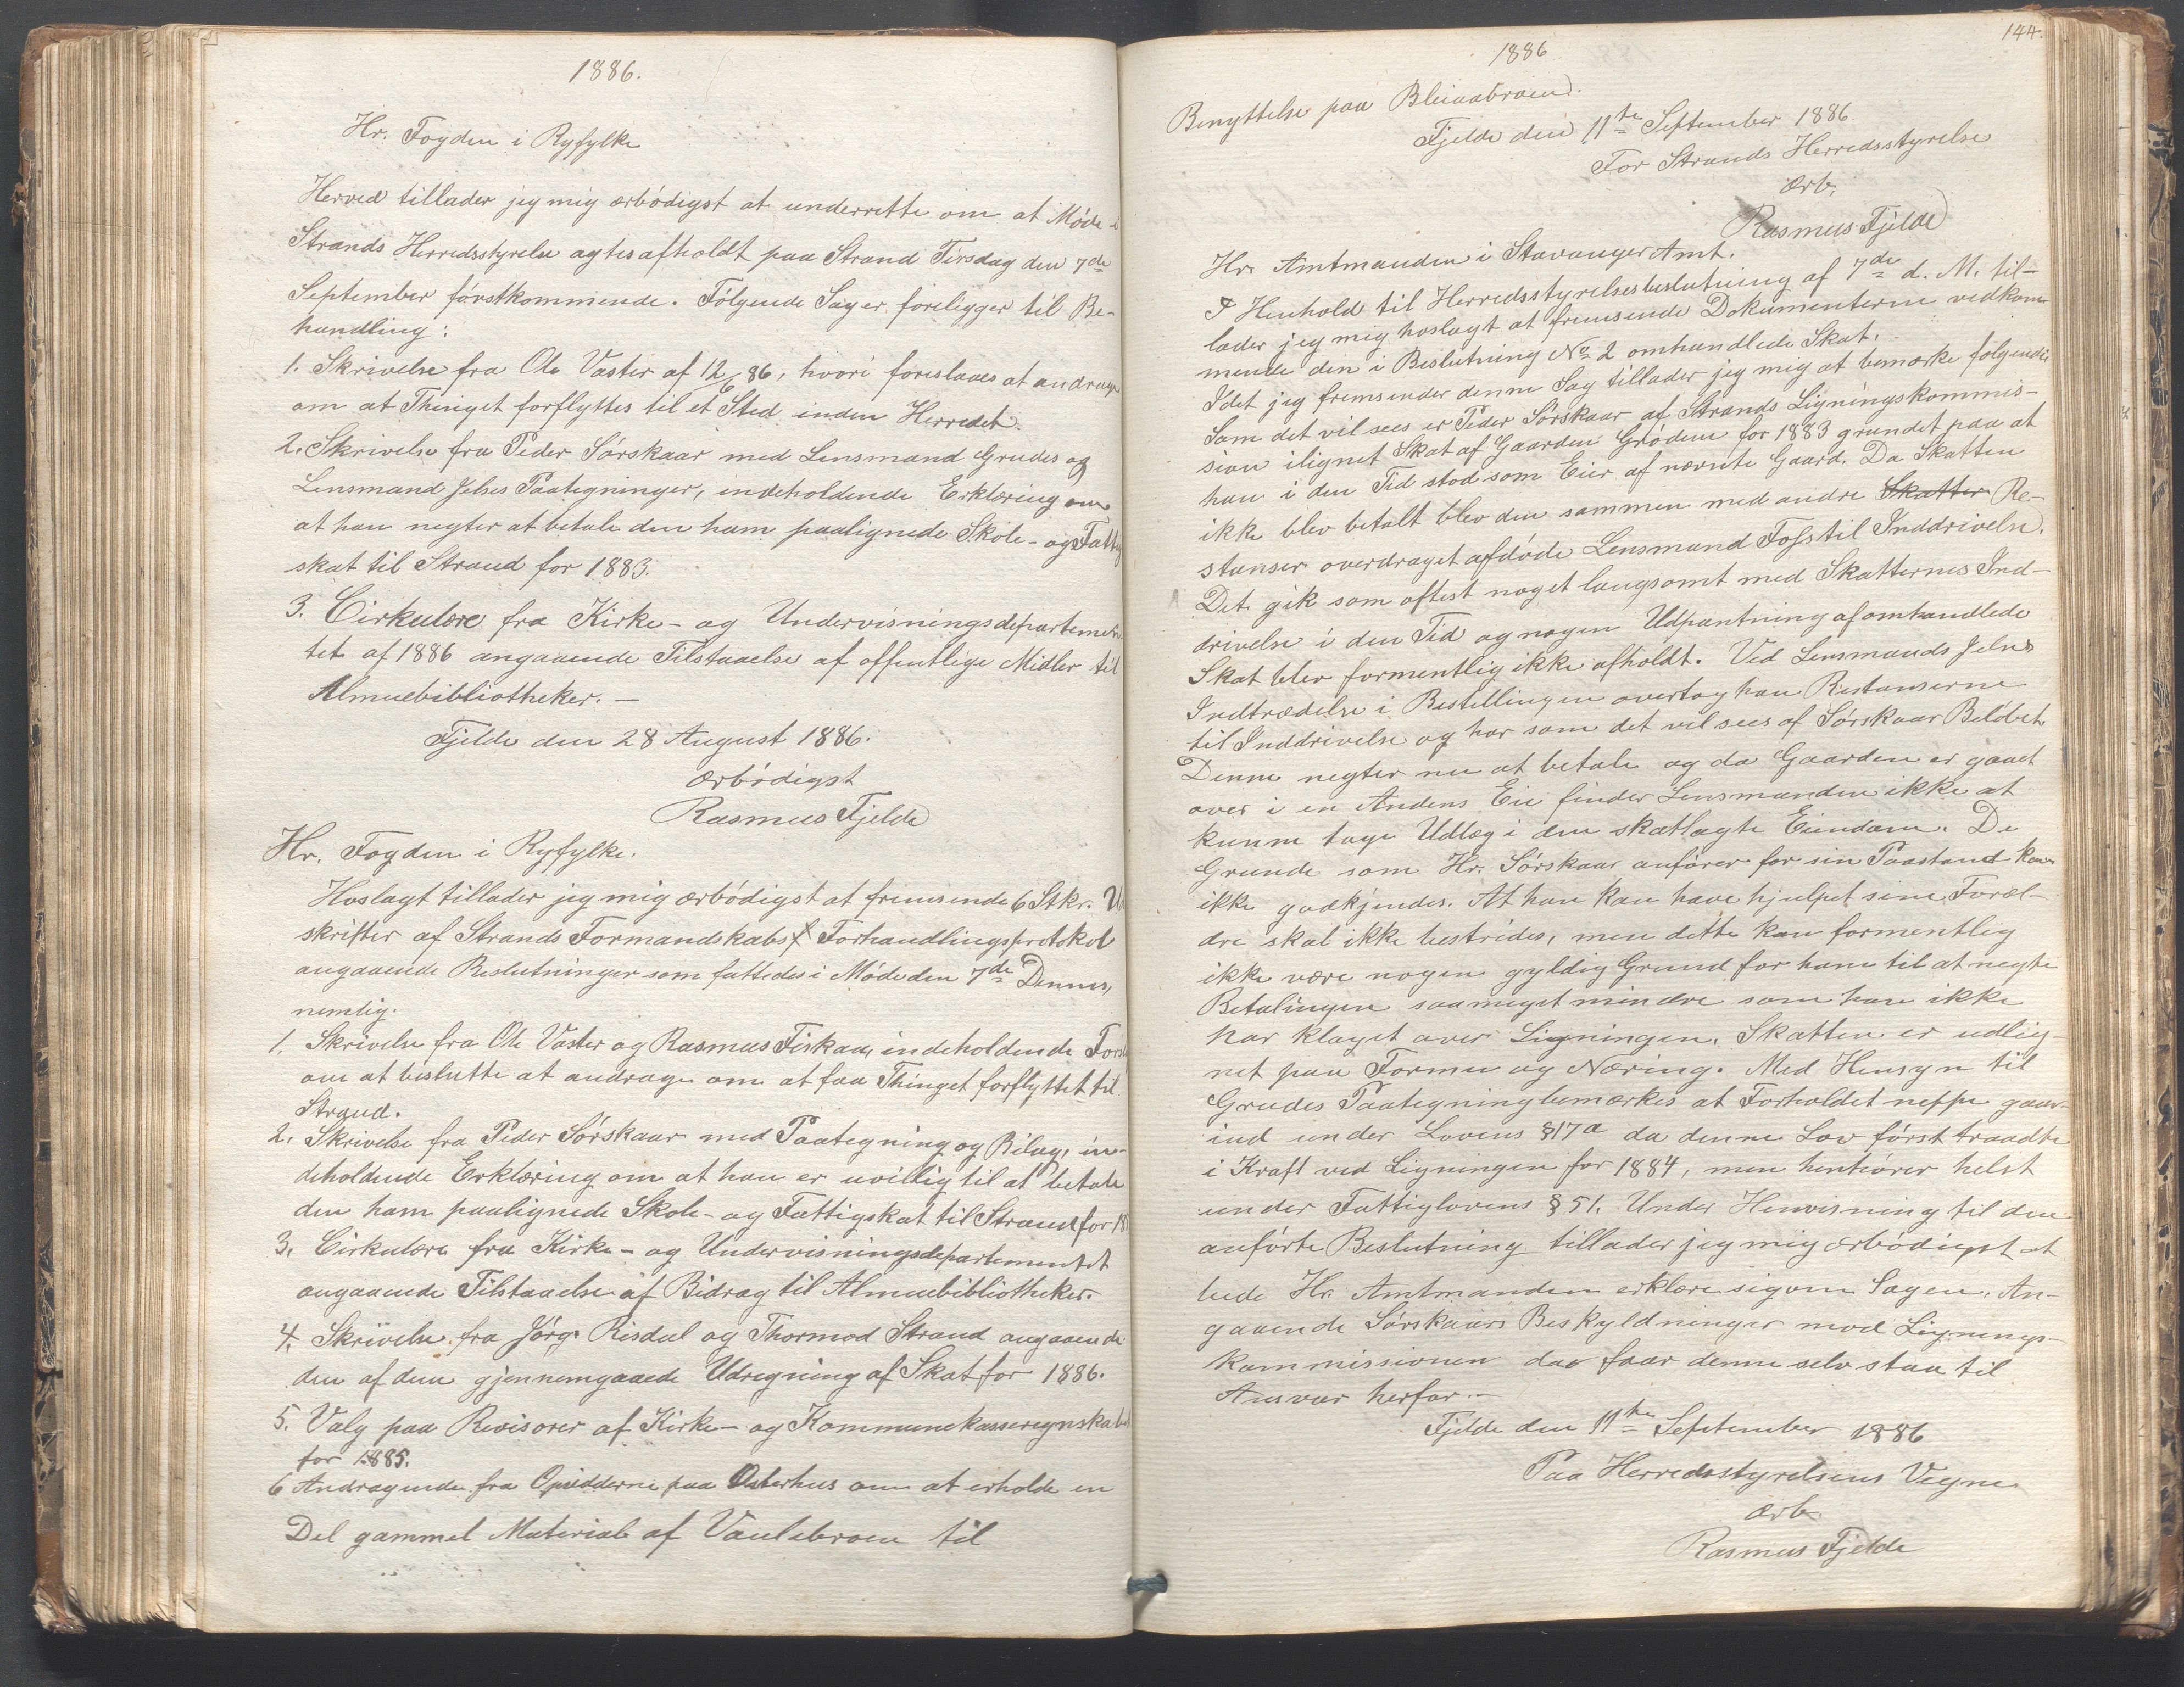 1886.
Hr. Fogden i Ryfylke
Herved tillader jeg mig ærbødigst at underrette om at Møde i
Strands Herredsstyrelse agtes afholdt paa Strand Tirsdag den 7de
September førstkommende. Følgende Sager foreligger til Be-
handling:
1. Skrivelse fra Ole Vaster af 12/6 86, hvori foreslaaes at andrage
om at Thinget forflyttes til et Sted inden Herredet.
2. Skrivelse fra Peder Sørskaar med Lensmand Grudes og
Lensmand Jelses Paategninger, indeholdende Erklæring om
at han negter at betale den ham paalignede Skole- og Fattig
skat til Strand for 1883.
3. Cirkulære fra Kirke- og Undervisningsdepartemen
tet af 1886 angaaende Tilstaaelse af offentlige Midler til
Almuebibliotheker. —
Fjelde den 28 August 1886.
ærbødigst
Rasmus Fjelde
Hr. Fogden i Ryfylke.
Hoslagt tillader jeg mig ærbødigst at fremsende 6 Stkr. Ud
skrifter af Strands Formandskabs Forhandlingsprotokol
angaaende Beslutninger som fattedes i Møde den 7de Dennes,
nemlig.
1. Skrivelse fra Ole Vaster og Rasmus Fiskaa, indeholdende Forsl
om at beslutte at andrage om at faa Thinget forflyttet til
Strand.
2. Skrivelse fra Peder Sørskaar med Paategning og Bilag, in-
deholdende Erklæring om at han er uvillig til at betale
den ham paalignede Skole- og Fattigskat til Strand for 18
3. Cirkulære fra Kirke- og Undervisningsdepartementet
angaaende Tilstaaelse af Bidrag til Almuebibliotheker.
4. Skrivelse fra Jørg. Risdal og Thormod Strand angaaende
den af dem gjennemgaaede Udregning af Skat for 1886.
5. Valg paa Revisorer af Kirke- og Kommunekasseregnskabet
for 1885.
6 Andragende fra Opsidderne paa Østerhus om at erholde en
Del gammel Materiale af Vaulebroen til
144.
1886
Benyttelse paa Bleiaabroen.
Fjelde den 11te September 1886.
For Strands Herredsstyrelse
ærb.
Rasmus Fjelde
Hr. Amtmanden i Stavanger Amt.
I Henhold til Herredsstyrelsesbeslutning af 7de d. M. til-
lader jeg mig hoslagt at fremsende Dokumenterne vedkom
mende den i Beslutning No 2 omhandlede Skat.
Idet jeg fremsender denne Sag tillader jeg mig at bemærke følgende
Som det vil sees er Peder Sørskaar af Strands Ligningskommis-
sion ilignet Skat af Gaarden Grødem for 1883 grundet paa at
han i den Tid stod som Eier af nævnte Gaard. Da Skatten
ikke blev betalt blev den sammen med andre Skatter Re-
stanser overdraget afdøde Lensmand Foss til Inddrivelse.
Det gik som oftest noget langsomt med Skatternes Ind-
drivelse i den Tid og nogen Udpantning af omhandlede
Skat blev formentlig ikke afholdt. Ved Lensmands Jelses
Indtrædelse i Bestillingen overtog han Restanserne
til Inddrivelse og har som det vil sees af Sørskaar Beløbet
Denne negter nu at betale og da Gaarden er gaaet
over i en Andens Eie finder Lensmanden ikke at
kunne tage Udlæg i den skatlagte Eiendom. De
Grunde som Hr. Sørskaar anfører for sin Paastand kan
ikke godkjendes. At han kan have hjulpet sine Foræl-
dre skal ikke bestrides, men dette kan formentlig
ikke være nogen gyldig Grund for ham til at negte
Betalingen saameget mindre som han ikke
har klaget over Ligningen. Skatten er udlig-
net paa Formue og Næring. Med Hensyn til
Grudes Paategning bemærkes at Forholdet neppe gaar
ind under Lovens §17a da denne Lov først traadte
i Kraft ved Ligningen for 1884, men henhører helst
under Fattiglovens § 51. Under Henvisning til den
anførte Beslutning tillader jeg mig ærbødigst at
bede Hr. Amtmanden erklære sig om Sagen. An-
gaaende Sørskaars Beskyldninger mod Lignings-
kommissionen da faar denne selv staa til
Ansvar herfor. —
Fjelde den 11te September 1886
Paa Herredsstyrelsens Vegne
ærb.
Rasmus Fjelde